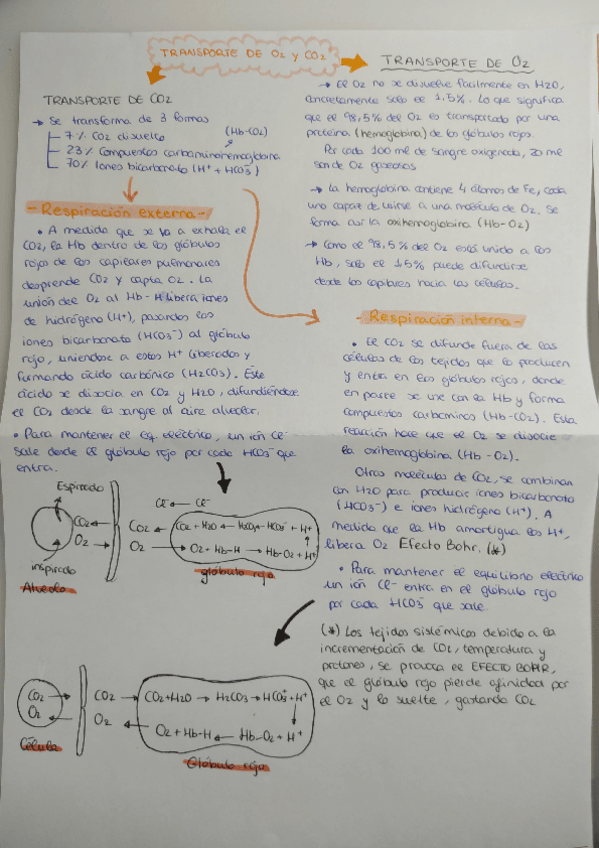 TRANSPORTE DE O2 y CO2
TRANSPORTE DE CO2
→ Se transforma de 3 formas
7% CO2 disuelto
(Hb-CO2)
23% Compuestos carbaminohemoglobina
70% Iones bicarbonato (H+ + HCO3-)
- Respiración externa -
• A medida que se va a exhalar el
CO2, la Hb dentro de los glóbulos
rojos de los capilares pulmonares
desprende CO2 y capta O2. La
unión del O2 al Hb-H libera iones
de hidrógeno (H+), pasando los
iones bicarbonato (HCO3-) al glóbulo
rojo, uniendose a estos H+ liberados y
formando ácido carbónico (H2CO3). Este
ácido se disocia en CO2 y H2O, difundiéndose
el CO2 desde la sangre al aire alveolar.
• Para mantener el eq. eléctrico, un ión Cl-
sale desde el glóbulo rojo por cada HCO3- que
entra.
Espirado
CO2
O2
inspirado
Alveolo
Cl- ← Cl-
CO2 ← CO2 + H2O ← H2CO3 ← HCO3- + H+
O2 → O2 + Hb-H → Hb-O2 + H+
glóbulo rojo
CO2
O2
Célula
CO2 → CO2+H2O → H2CO3 → HCO3- + H+
O2 ← O2 + Hb-H ← Hb-O2 + H+
Glóbulo rojo
TRANSPORTE DE O2
→ El O2 no se disuelve facilmente en H2O,
concretamente solo el 1,5%. Lo que significa
que el 98,5% del O2 es transportado por una
proteína (hemoglobina) de los glóbulos rojos.
Por cada 100 ml de sangre oxigenada, 20 ml
son de O2 gaseosos
→ La hemoglobina contiene 4 átomos de Fe, cada
uno capaz de unirse a una molécula de O2. Se
forma así la oxihemoglobina (Hb-O2)
→ Como el 98,5% del O2 está unido a los
Hb, solo el 1,5% puede difundirse
desde los capilares hacia las células.
- Respiración interna -
• El CO2 se difunde fuera de las
células de los tejidos que lo producen
y entra en los glóbulos rojos, donde
en parte se une con la Hb y forma
compuestos carbaminos (Hb-CO2). Esta
reacción hace que el O2 se disocie
la oxihemoglobina (Hb-O2).
Otras moléculas de CO2, se combinan
con H2O para producir iones bicarbonato
(HCO3-) e iones hidrógeno (H+). A
medida que la Hb amortigua los H+,
libera O2 Efecto Bohr. (*)
• Para mantener el equilibrio eléctrico
un ión Cl- entra en el glóbulo rojo
por cada HCO3- que sale.
(*) Los tejidos sistémicos debido a la
incrementación de CO2, temperatura y
protones, se provoca el EFECTO BOHR,
que el glóbulo rojo pierde afinidad por
el O2 y lo suelta, captando CO2